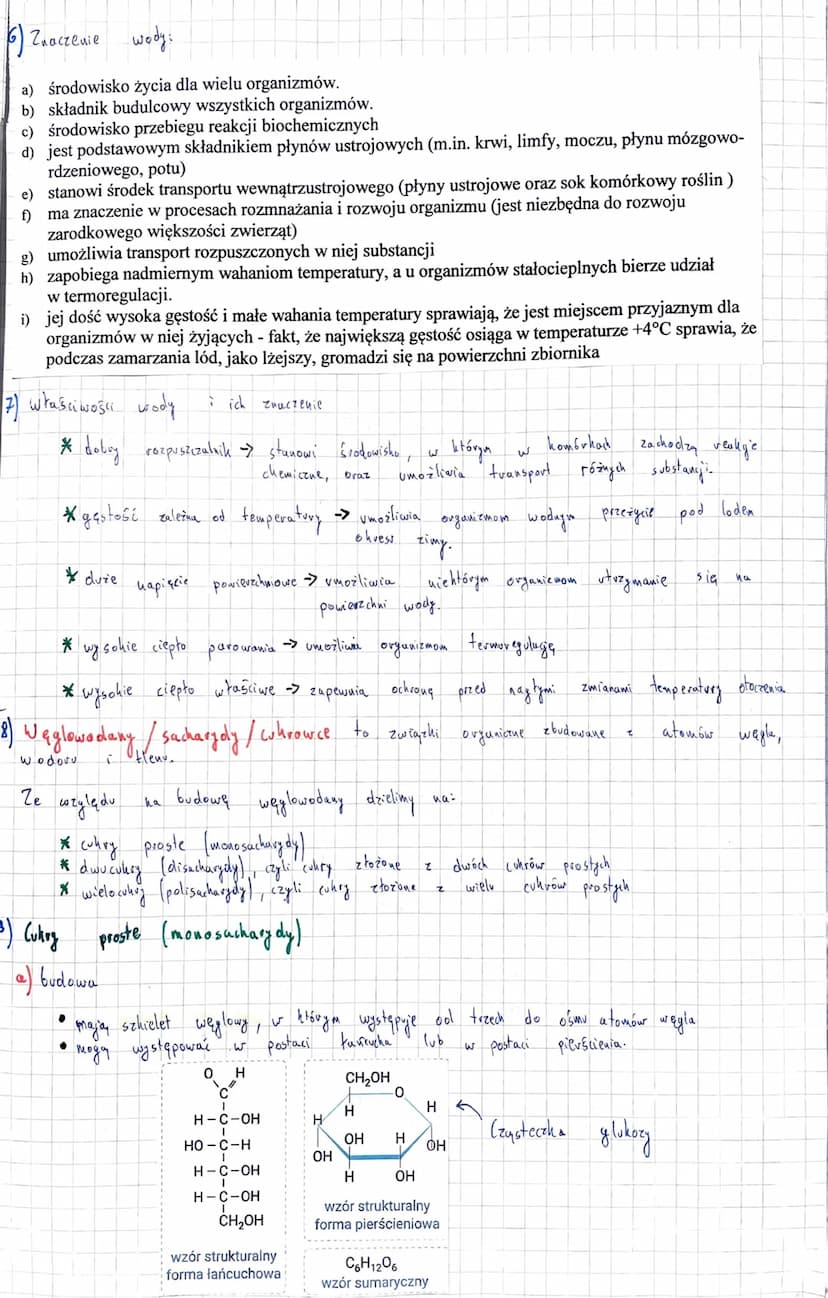 6) Znaczenie wody:
a) środowisko życia dla wielu organizmów.
b) składnik budulcowy wszystkich organizmów.
c) środowisko przebiegu reakcji biochemicznych
d) jest podstawowym składnikiem płynów ustrojowych (m.in. krwi, limfy, moczu, płynu mózgowo-
rdzeniowego, potu)
e) stanowi środek transportu wewnątrzustrojowego (płyny ustrojowe oraz sok komórkowy roślin )
f) ma znaczenie w procesach rozmnażania i rozwoju organizmu (jest niezbędna do rozwoju
zarodkowego większości zwierząt)
g) umożliwia transport rozpuszczonych w niej substancji
h) zapobiega nadmiernym wahaniom temperatury, a u organizmów stałocieplnych bierze udział
w termoregulacji.
i) jej dość wysoka gęstość i małe wahania temperatury sprawiają, że jest miejscem przyjaznym dla
organizmów w niej żyjących - fakt, że największą gęstość osiąga w temperaturze +4°C sprawia, że
podczas zamarzania lód, jako lżejszy, gromadzi się na powierzchni zbiornika
7) właściwości wody i ich znaczenie
* dobry rozpuszczalnik → stanowi środowisko, w którym w komórkach zachodzą reakcje
chemiczne, oraz umożliwia transport różnych substancji.
* gęstość zależna od temperatury → umożliwia organizmom wodnym przeżycie pod lodem
okresu zimy.
* duże napięcie powierzchniowe → umożliwia niektórym organizmom utrzymanie się na
powierzchni wody.
* wysokie ciepło parowania → umożliwia organizmom termoregulację
* wysokie ciepło właściwe → zapewnia ochronę przed nagłymi zmianami temperatury otoczenia
8) Węglowodany / sacharydy / cukrowce to związki organiczne zbudowane z atomów węgla,
wodoru i tlenu.
Ze względu na budowę węglowodany dzielimy na:
* cukry proste (monosacharydy)
* dwucukry (disacharydy), czyli cukry złożone z dwóch cukrów prostych
* wielocukry (polisacharydy), czyli cukry złożone z wielu cukrów prostych
9) Cukry proste (monosacharydy)
a) budowa
• mają szkielet węglowy, w którym występuje od trzech do ośmu atomów węgla
• mogą występować w postaci łańcucha lub w postaci pierścienia.
O H
C
H-C-OH
HO-C-H
H-C-OH
H-C-OH
CH₂OH
wzór strukturalny
forma łańcuchowa
CH₂OH
O
H H H
OH H
OH OH
H OH
wzór strukturalny
forma pierścieniowa
C₆H₁₂O₆
wzór sumaryczny
Cząsteczka glukozy